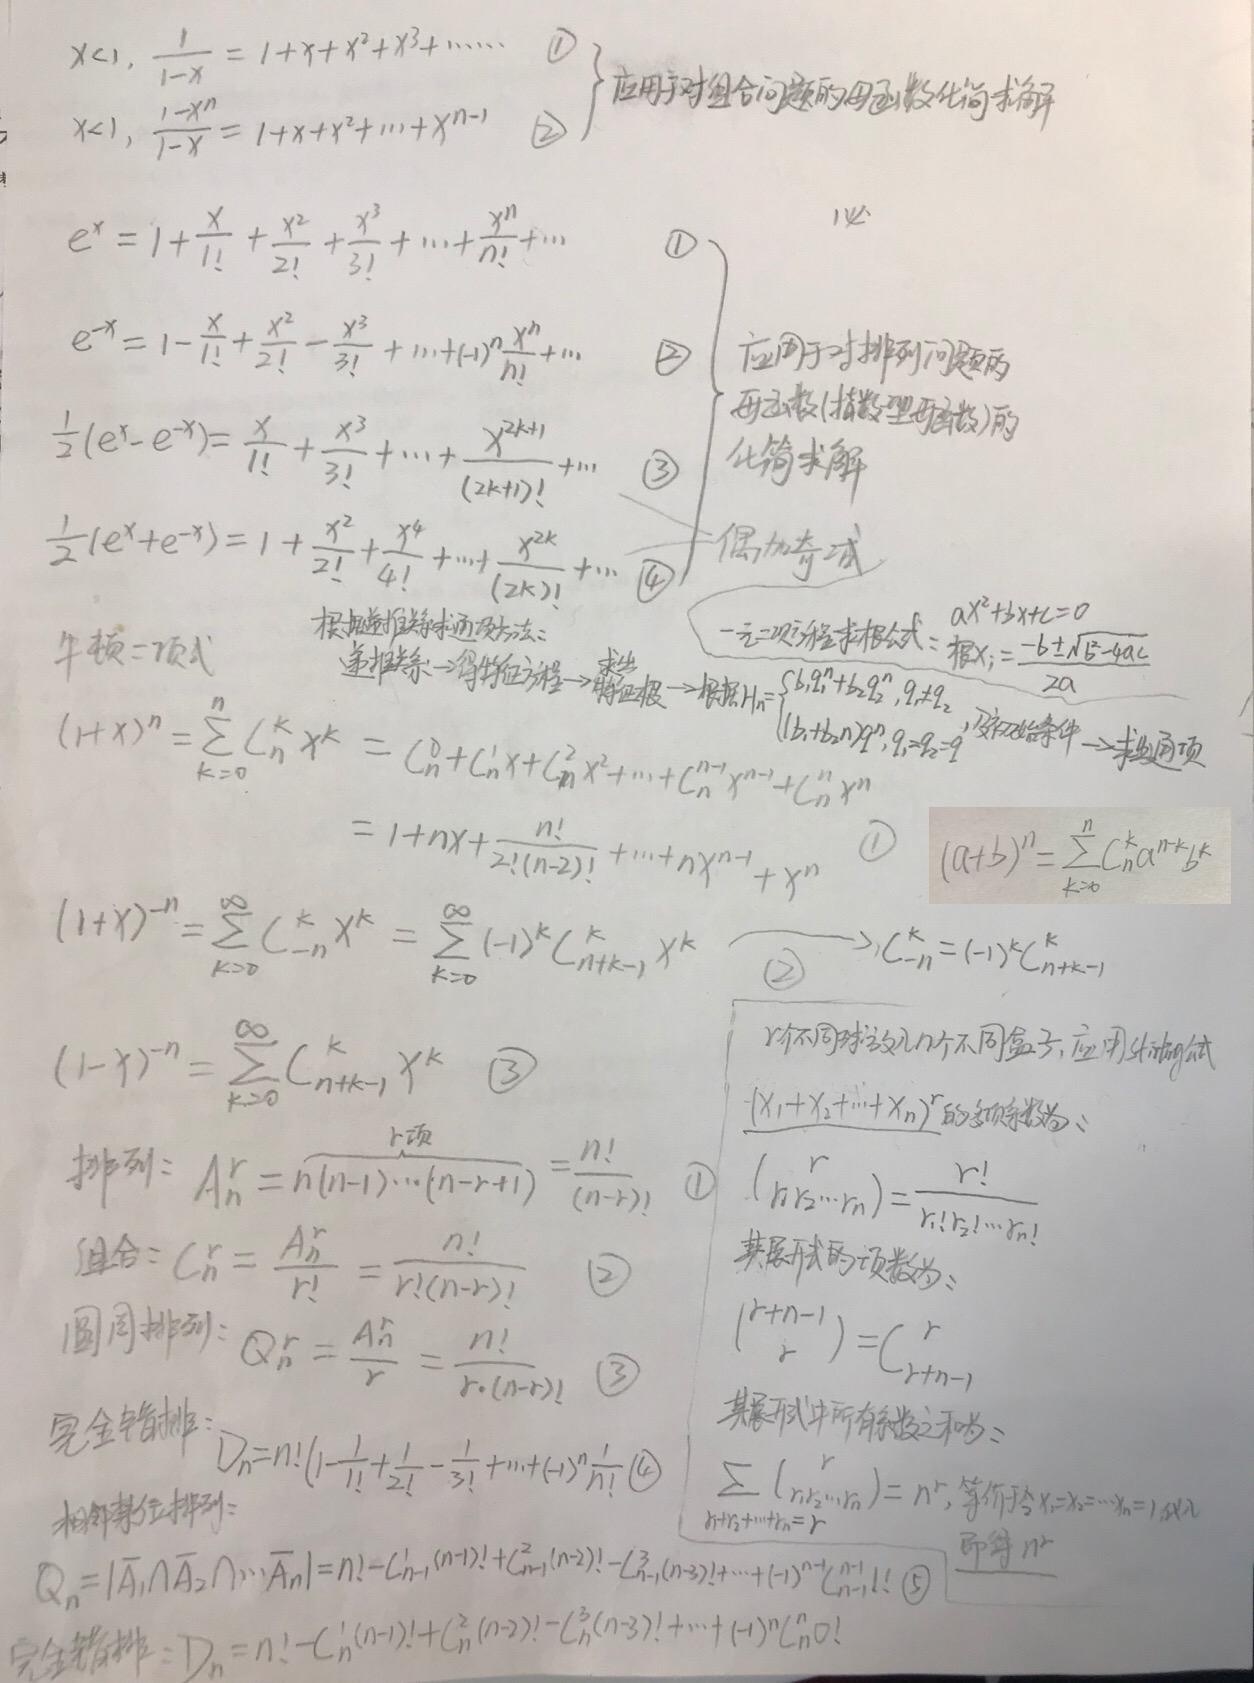 x<1, 1/(1-x) = 1+x+x²+x³+…… ①
x<1, (1-xⁿ)/(1-x) = 1+x+x²+…+xⁿ⁻¹ ②
应用于对组合问题的母函数化简求解
eˣ = 1 + x/1! + x²/2! + x³/3! + … + xⁿ/n! + … ①
e⁻ˣ = 1 - x/1! + x²/2! - x³/3! + … +(-1)ⁿ xⁿ/n! + … ②
1/2(eˣ - e⁻ˣ) = x/1! + x³/3! + … + x²ᵏ⁺¹/(2k+1)! + … ③
1/2(eˣ + e⁻ˣ) = 1 + x²/2! + x⁴/4! + … + x²ᵏ/(2k)! + … ④
应用于对排列问题的
母函数(指数型母函数)的
化简求解
偶加奇减
一元二次方程求根公式: ax²+bx+c=0
根xᵢ = (-b±√(b²-4ac))/2a
根据递推关系求通项方法:
递推关系→得特征方程→求出特征根→根据Hn = { b₁q₁ⁿ+b₂q₂ⁿ, q₁≠q₂
(b₁+b₂n)qⁿ, q₁=q₂=q ,及初始条件→求出通项
牛顿二项式
(1+x)ⁿ = Σ_{k=0}^{n} C_n^k xᵏ = C_n^0 + C_n^1 x + C_n^2 x² + … + C_n^{n-1} xⁿ⁻¹ + C_n^n xⁿ
= 1 + nx + n!/(2!(n-2)!) + … + nxⁿ⁻¹ + xⁿ ①
(a+b)ⁿ = Σ_{k=0}^{n} C_n^k a^{n-k} bᵏ
(1+x)⁻ⁿ = Σ_{k=0}^{∞} C_{-n}^k xᵏ = Σ_{k=0}^{∞} (-1)ᵏ C_{n+k-1}^k xᵏ ② → C_{-n}^k = (-1)ᵏ C_{n+k-1}^k
(1-x)⁻ⁿ = Σ_{k=0}^{∞} C_{n+k-1}^k xᵏ ③
排列: A_n^r = n(n-1)…(n-r+1) = n!/(n-r)! ①
r项
组合: C_n^r = A_n^r/r! = n!/(r!(n-r)!) ②
圆周排列: Q_n^r = A_n^r/r = n!/(r·(n-r)!) ③
完全错排:
Dn = n!(1 - 1/1! + 1/2! - 1/3! + … +(-1)ⁿ 1/n! ④
相邻禁位排列:
Qn = |Ā₁∩Ā₂∩…Ān| = n! - C_{n-1}^1 (n-1)! + C_{n-1}^2 (n-2)! - C_{n-1}^3 (n-3)! + … + (-1)ⁿ⁻¹ C_{n-1}^{n-1} 1! ⑤
完全错排: Dn = n! - C_n^1 (n-1)! + C_n^2 (n-2)! - C_n^3 (n-3)! + … + (-1)ⁿ C_n^n 0!
r个不同球放入n个不同盒子, 应用公式
(x₁+x₂+…+xn)ʳ的各项系数为:
(r / r₁ r₂…rn) = r!/(r₁!r₂!…rn!)
其展开式的项数为:
(r+n-1 / r) = C_{r+n-1}^r
其展开式中所有系数之和为:
Σ_{r₁+r₂+…+rn=r} (r / r₁ r₂…rn) = nʳ, 等价于令x₁=x₂=…xn=1,代入
即得nʳ